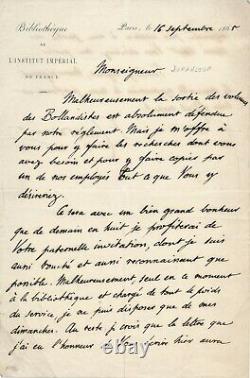 Bibliothèque
DE
L'INSTITUT IMPÉRIAL
DE FRANCE
Paris, le 16 septembre
Monseigneur
DUPANLOUP
Malheureusement la sortie des volumes
des Bollandistes est absolument défendue
par notre règlement. Mais je m'offre à
vous pour y faire les recherches dont vous
avez besoin et pour y faire copier par
un de nos employés tout ce que vous y
désirerez
Ce sera avec un bien grand bonheur
que de demain en huit je profiterai de
votre paternelle invitation, dont je suis
aussi touché et aussi reconnaissant que
possible. Malheureusement, seul en ce moment
à la bibliothèque et chargé de tout le poids
du service, je ne puis disposer que de mes
dimanches. Au reste je crois que la lettre que
j'ai eu l'honneur de vous écrire hier aura